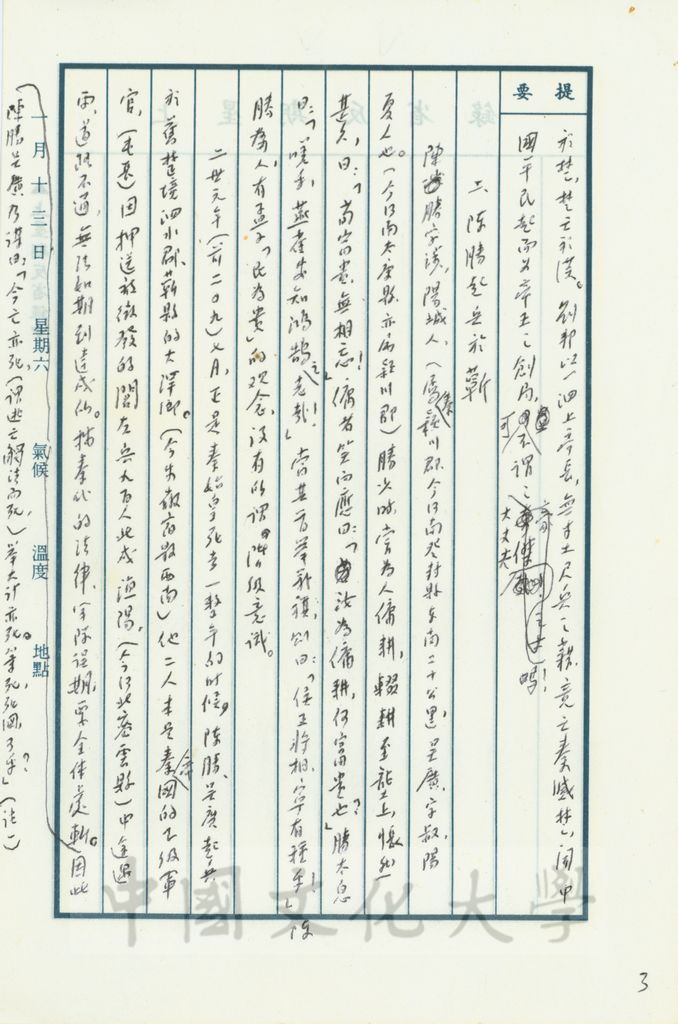 提要
於楚,楚亡於漢。劉邦以一泗上亭長,無寸土尺兵之藉,竟亡秦滅楚,開中
國平民起而為帝王之創局,可不謂之大丈夫嗎!
二、陳勝起兵於蘄
陳勝字涉,陽城人,(屬秦潁川郡,今河南登封縣東南二十公里,吳廣,字叔,陽
夏人也。(今河南太康縣亦屬潁川郡)勝少時,嘗為人傭耕,輟耕至壟上,悵然
甚久,曰:「苟富貴,無相忘!」傭者笑而應曰:「汝為傭耕,何富貴也?」勝太息
曰:「嗟乎,燕雀安知鴻鵠之志哉!」當其首舉新旗,則曰:「侯王將相,寧有種乎!」陳
勝為人,有孟子「民為貴」的观念,没有所謂階級意識。
二世元年(前二〇九)七月,正是秦始皇死去一整年的时候,陳勝、吳廣起兵
於舊楚境泗水郡蘄縣的大澤鄉。(今安徽宿縣西南)他二人本是秦帝國的下級軍
官,(屯長)因押送被徵發的閭左兵九百人北戍漁陽,(今河北密雲縣)中途遇
雨,道路不通,無法如期到達戍所。按秦代的法律,軍隊誤期,要全体處斬。因此
陳勝吳廣乃謀曰:「今亡亦死,(謂逃亡觸法而死)舉大計亦死。等死,死國可乎?」(註一)
一月十三日 星期六 氣候 溫度 地點
中國文化大學
3